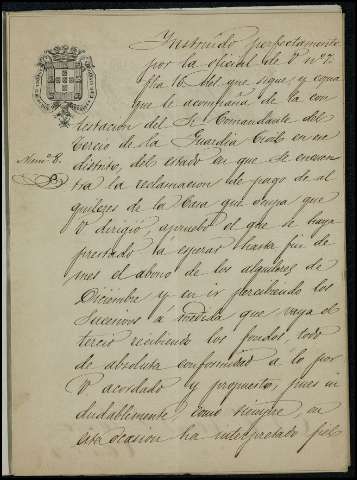 Instruido perfectamente
por la oficial de V nº 7.
fha 16 del que sigue, y copia
que le acompaña de la con
testacion del Sr Comandante del
Tercio de la Guardia Civil en ese
Núm.º 8.
distrito, del estado en que se encuen
tra la reclamacion de pago de al
quileres de la Casa que ocupa que
V dirigió, apruebo el que se haya
prestado á esperar hasta fin de
mes el abono de los alquileres de
Diciembre y en ir percibiendo los
sucesivos á medida que vaya el
tercio recibiendo los fondos, todo
de absoluta conformidad á lo por
V acordado y propuesto, pues in
dudablemente, como siempre, en
esta ocasion ha interpretado fiel